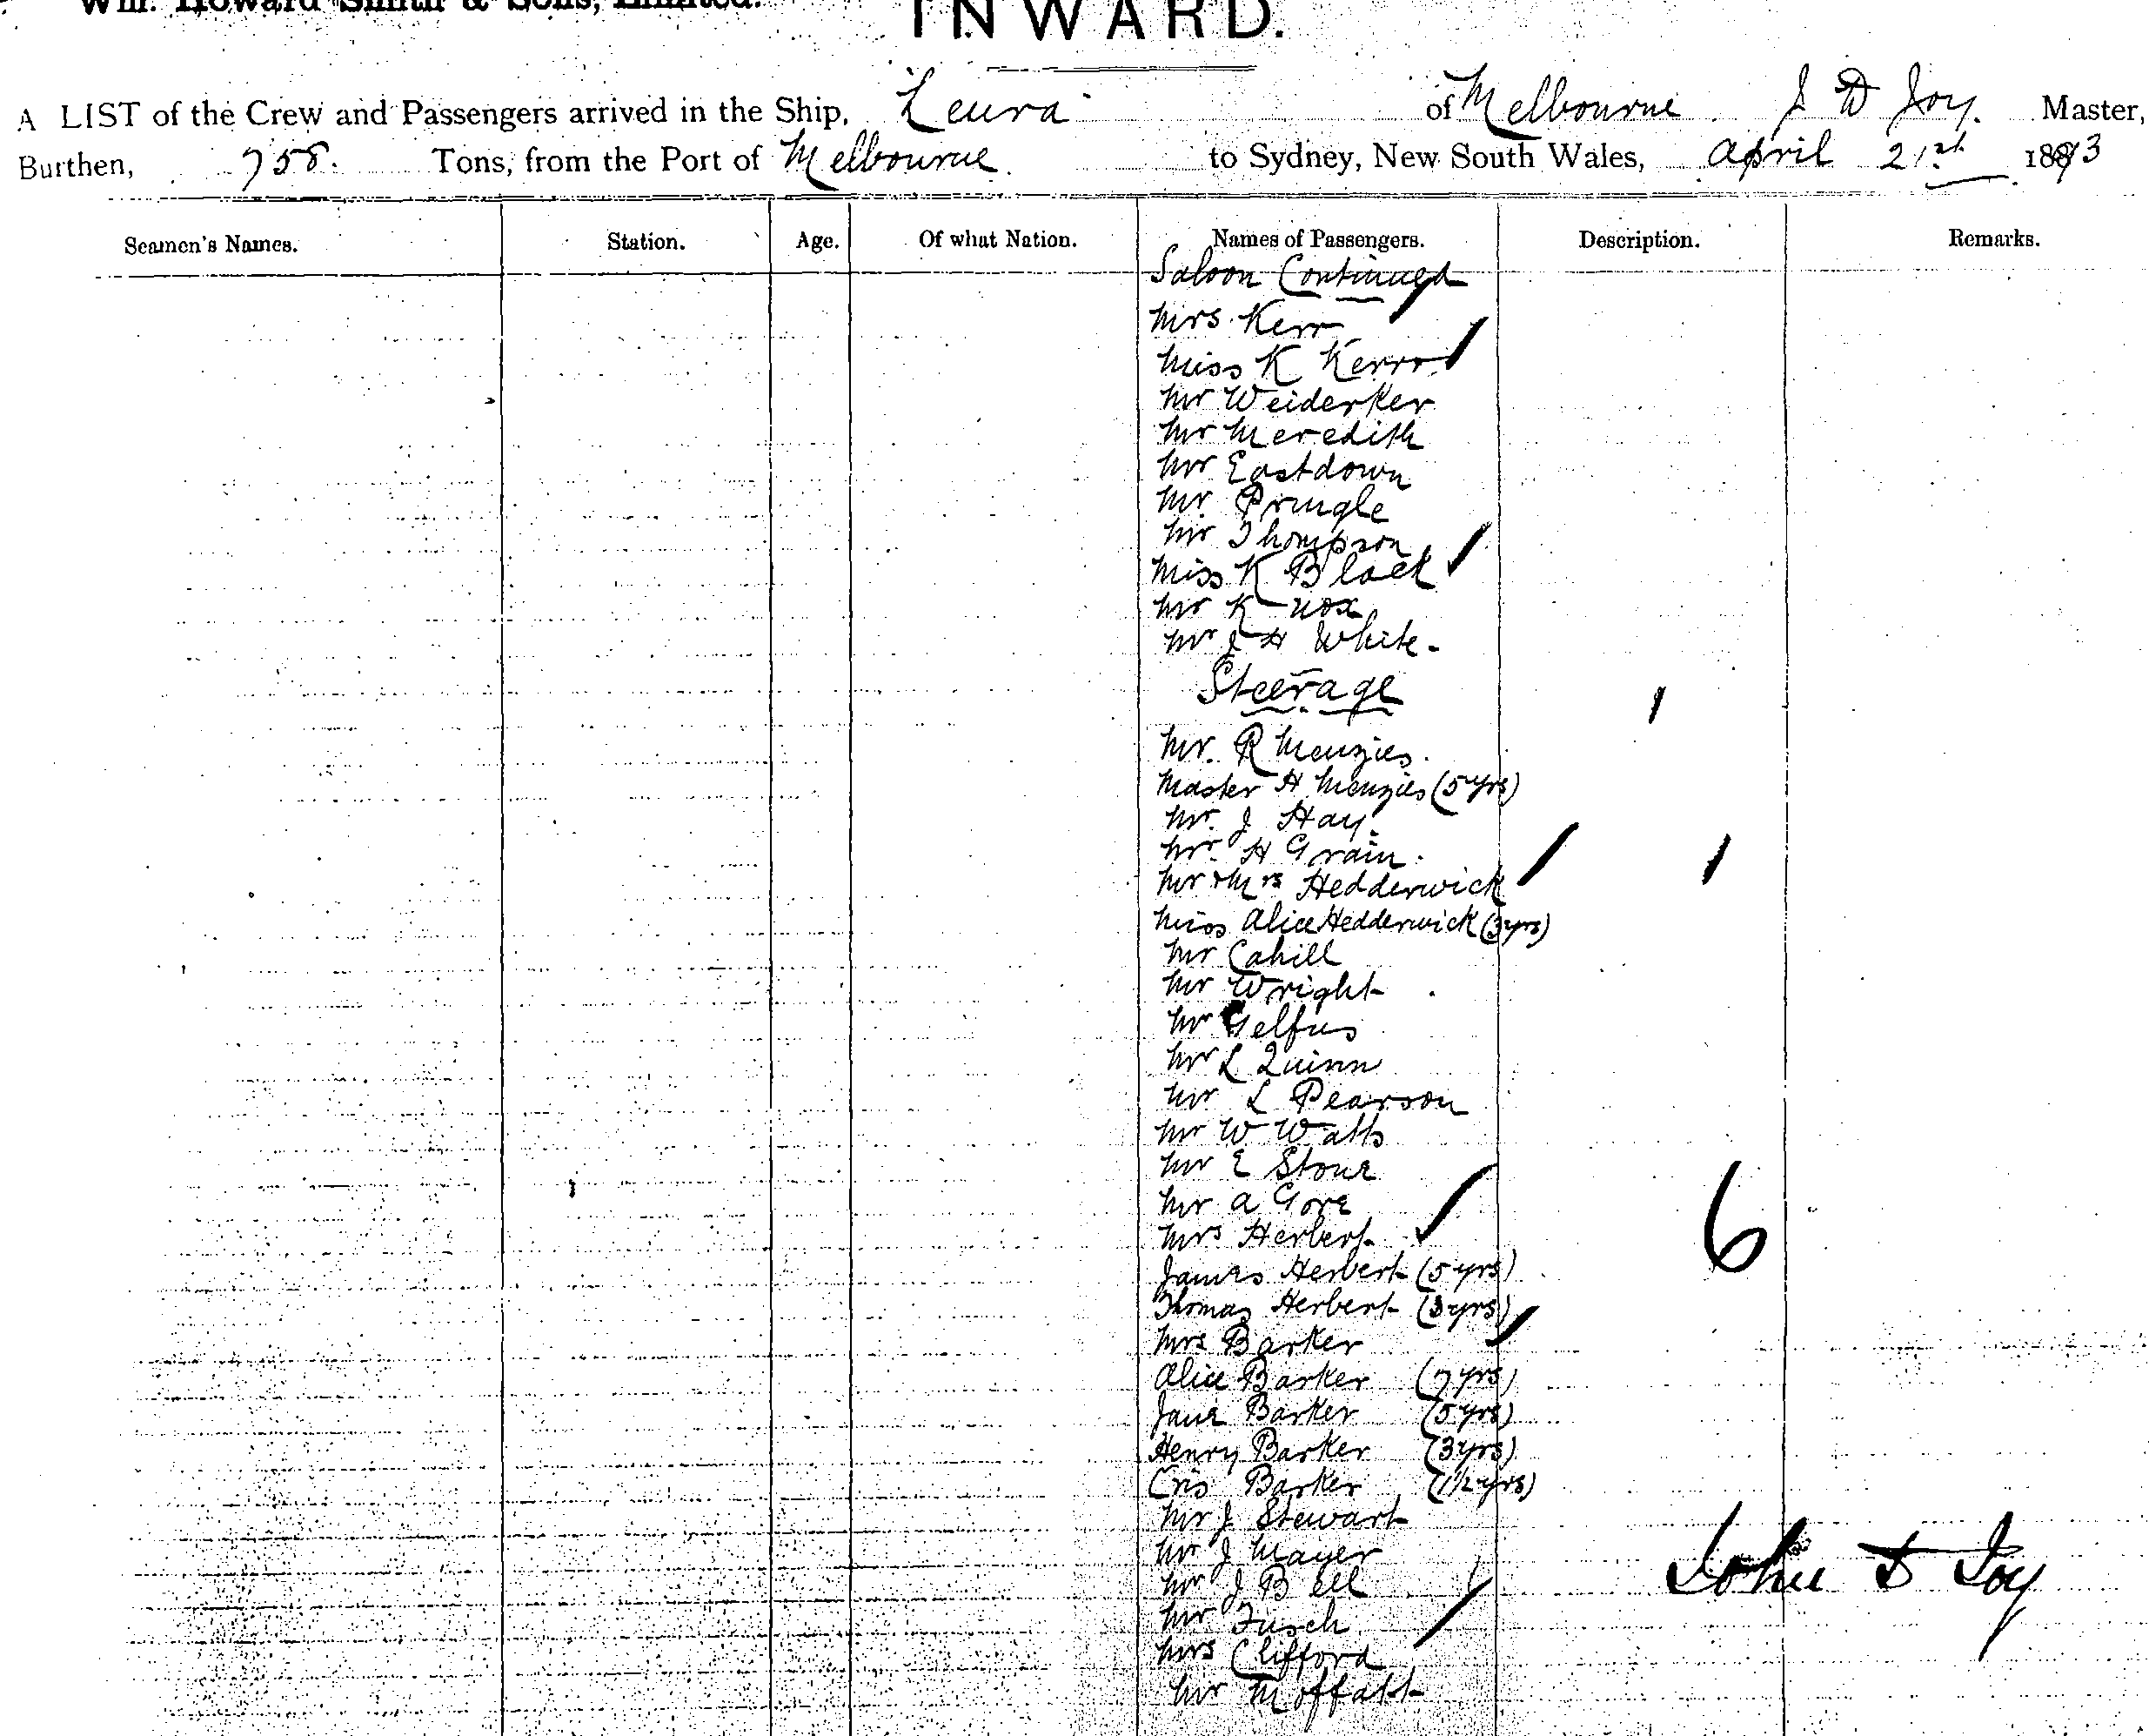 Wm. Howard Smith & Sons, Limited.
INWARD.
A LIST of the Crew and Passengers arrived in the Ship, Leura of Melbourne J D Joy. Master,
Burthen, 758. Tons, from the Port of Melbourne to Sydney, New South Wales, April 21st 1893
Seamen's Names. Station. Age. Of what Nation. Names of Passengers. Description. Remarks.
Saloon Continued
Mrs. Kerr
Miss K Kerr
Mr Weiderker
Mr Meredith
Mr Eastdown
Mr. Pringle
Mr Thompson
Miss K Black
Mr Knox
Mr J H White.
Steerage
Mr. R Menzies.
Master H Menzies (5 yrs)
Mr. J Hay.
Mr. H Grain.
Mr & Mrs Hedderwick
Miss Alice Hedderwick (3 yrs)
Mr Cahill
Mr Wright
Mr Gelfus
Mr L Quinn
Mr L Pearson
Mr W Watts
Mr E Stone
Mr A Gore
Mrs Herbert
6
James Herbert (5 yrs)
Thomas Herbert (3 yrs)
Mrs Barker
Alice Barker (7 yrs)
Jane Barker (5 yrs)
Henry Barker (3 yrs)
Cris Barker (1½ yrs)
Mr J Stewart
Mr J Mayer
Mr J Bell
John D Joy
Mr Fusch
Mrs Clifford
Mr Moffatt